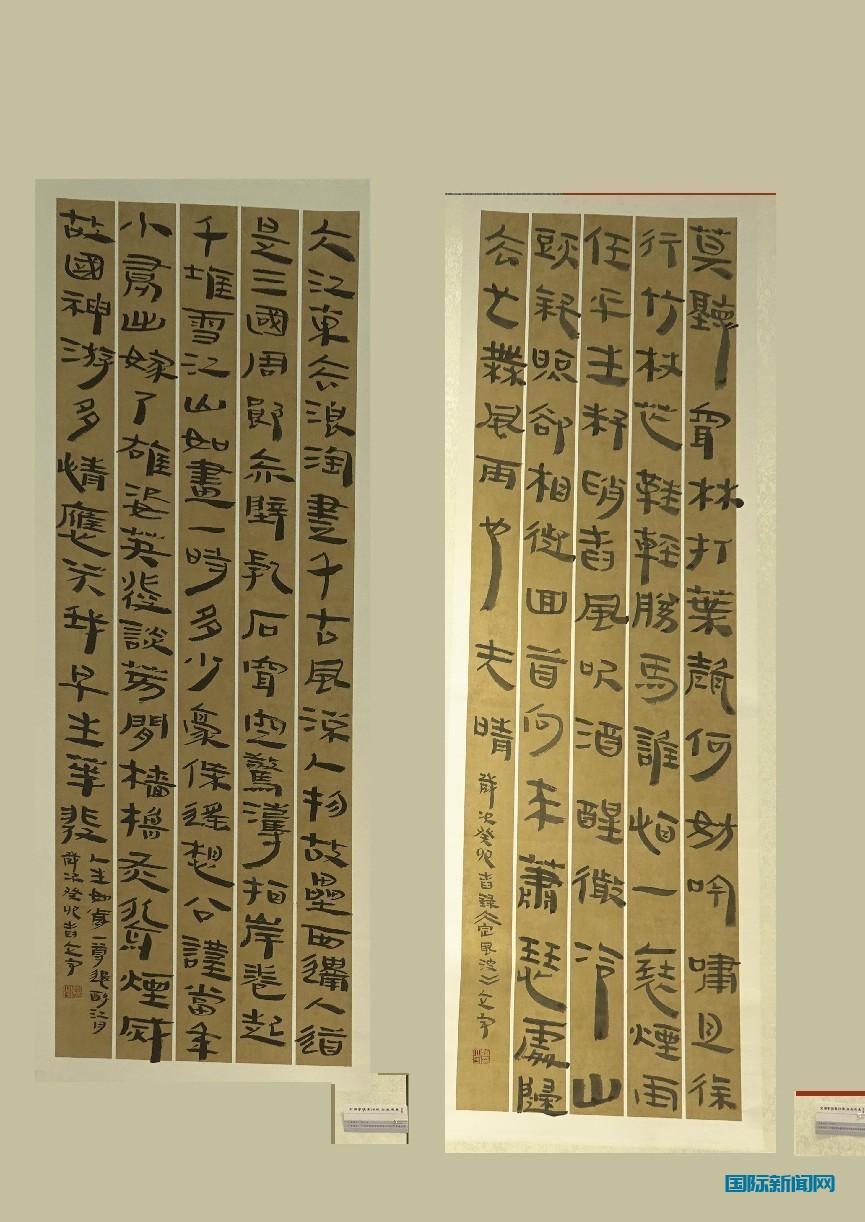 大江東去浪淘盡千古風流人物故壘西邊人道
是三國周郎赤壁亂石穿空驚濤拍岸卷起
千堆雪江山如畫一時多少豪傑遙想公謹當年
小喬出嫁了雄姿英發談笑間檣櫓灰飛煙滅
故國神游多情應笑我早生華發
人生如夢一尊還酹江月
蘇詞癸卯春文宇
莫聽穿林打葉聲何妨吟嘯且徐
行竹杖芒鞋輕勝馬誰怕一蓑煙雨
任平生料峭春風吹酒醒微冷山
頭斜照卻相迎回首向來蕭瑟處歸
去也無風雨也无晴
蘇詞癸卯春錄定風波文宇
国际新闻网